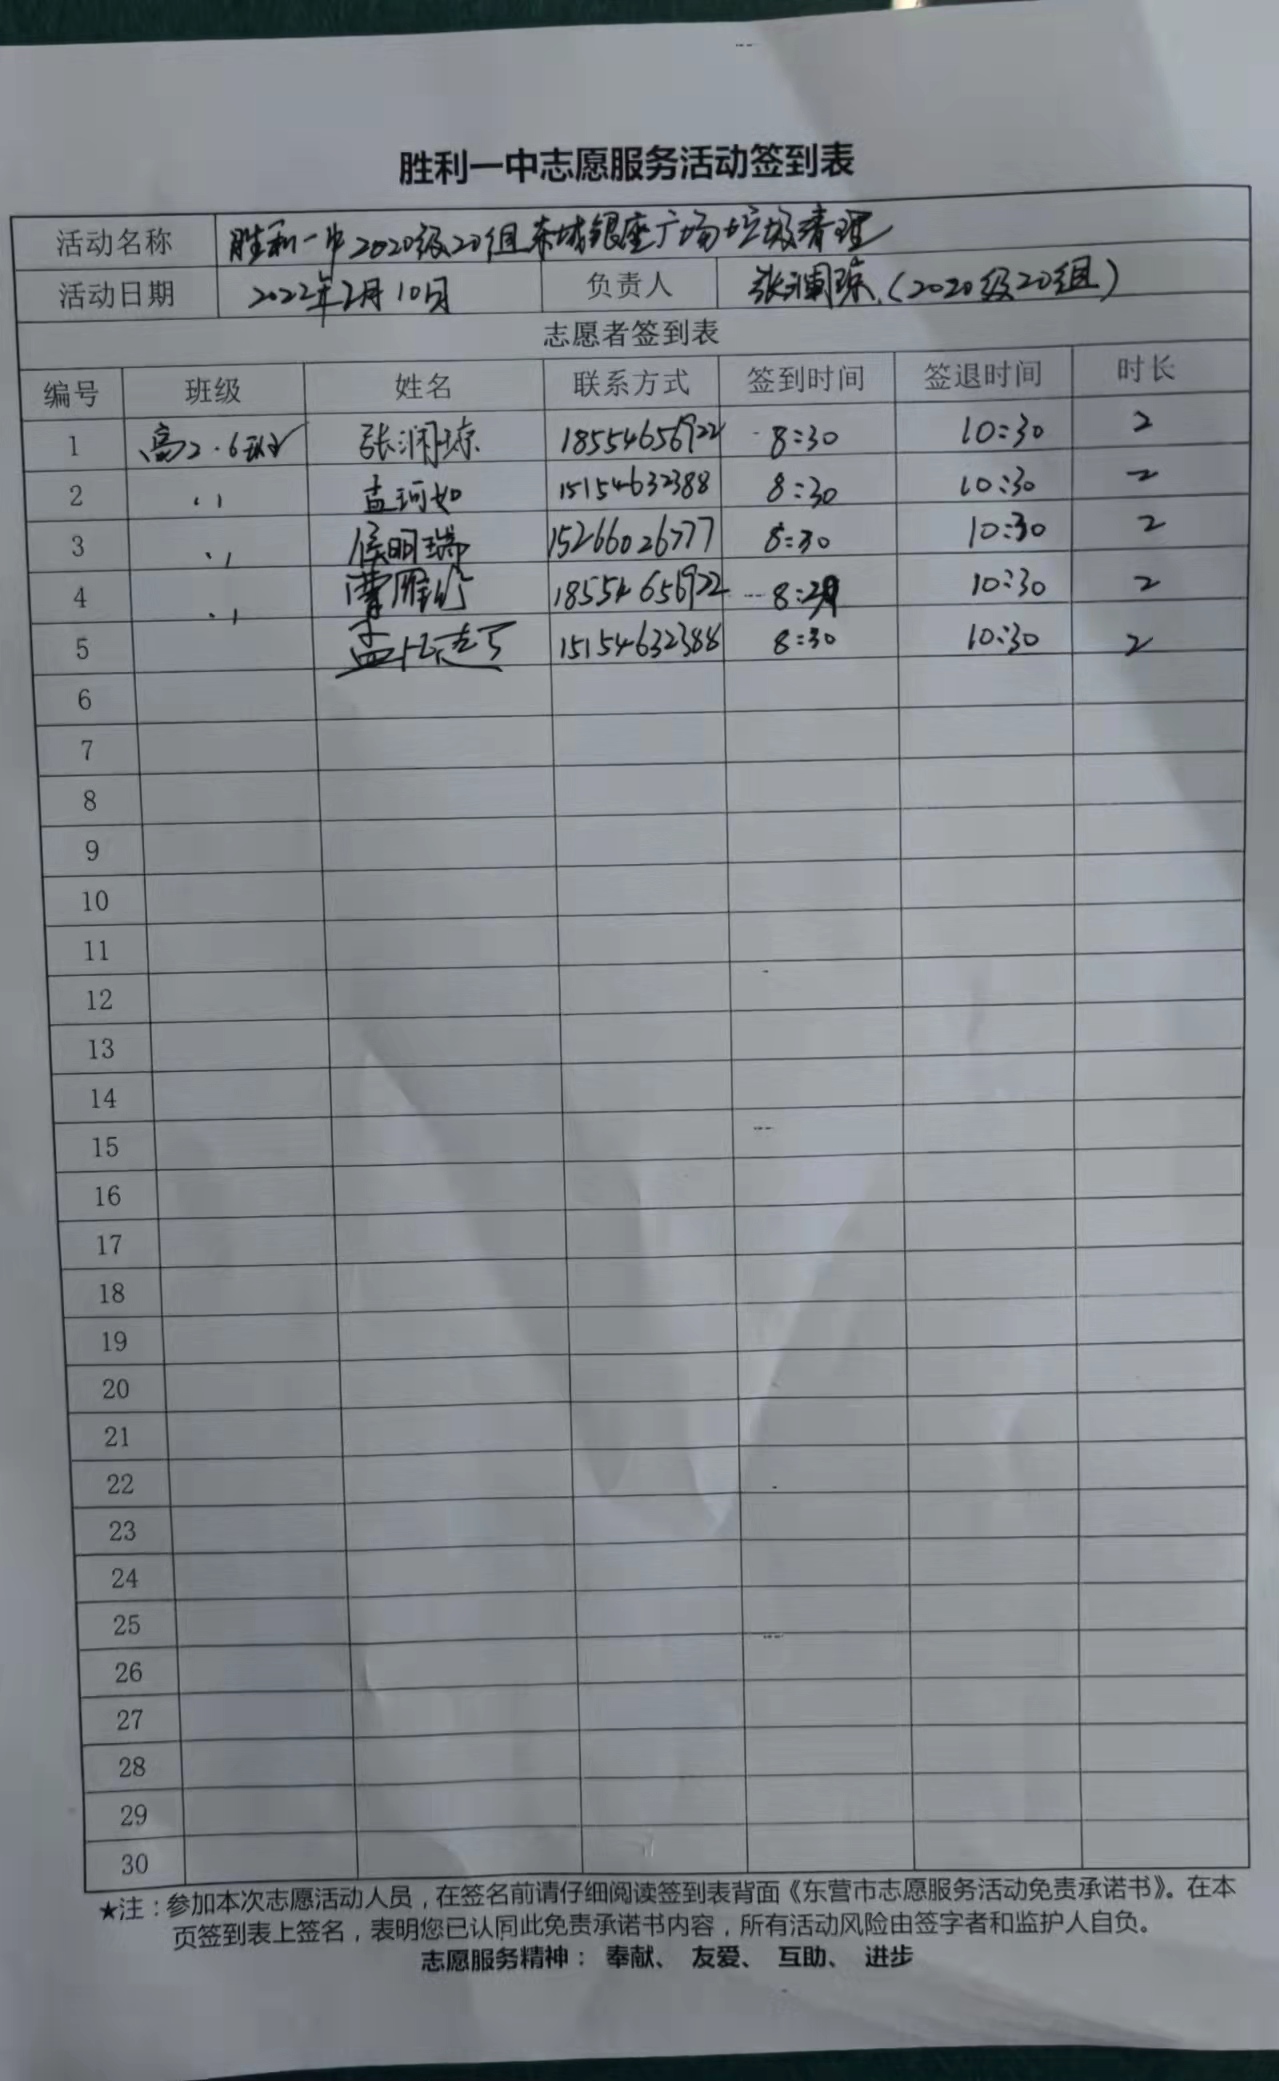 胜利一中志愿服务活动签到表
活动名称 胜利一中2020级20组东城银座广场垃圾清理
活动日期 2022年2月10日 负责人 张澜琼（2020级20组）
志愿者签到表
编号 班级 姓名 联系方式 签到时间 签退时间 时长
1 高2.6班 张澜琼 18554656922 8:30 10:30 2
2 〃 孟珂如 15154632388 8:30 10:30 2
3 〃 侯明瑞 15266026777 8:30 10:30 2
4 〃 曹 18554656922 8: 10:30 2
5 孟 15154632388 8:30 10:30 2
6
7
8
9
10
11
12
13
14
15
16
17
18
19
20
21
22
23
24
25
26
27
28
29
30
★注：参加本次志愿活动人员，在签名前请仔细阅读签到表背面《东营市志愿服务活动免责承诺书》。在本
页签到表上签名，表明您已认同此免责承诺书内容，所有活动风险由签字者和监护人自负。
志愿服务精神： 奉献、 友爱、 互助、 进步